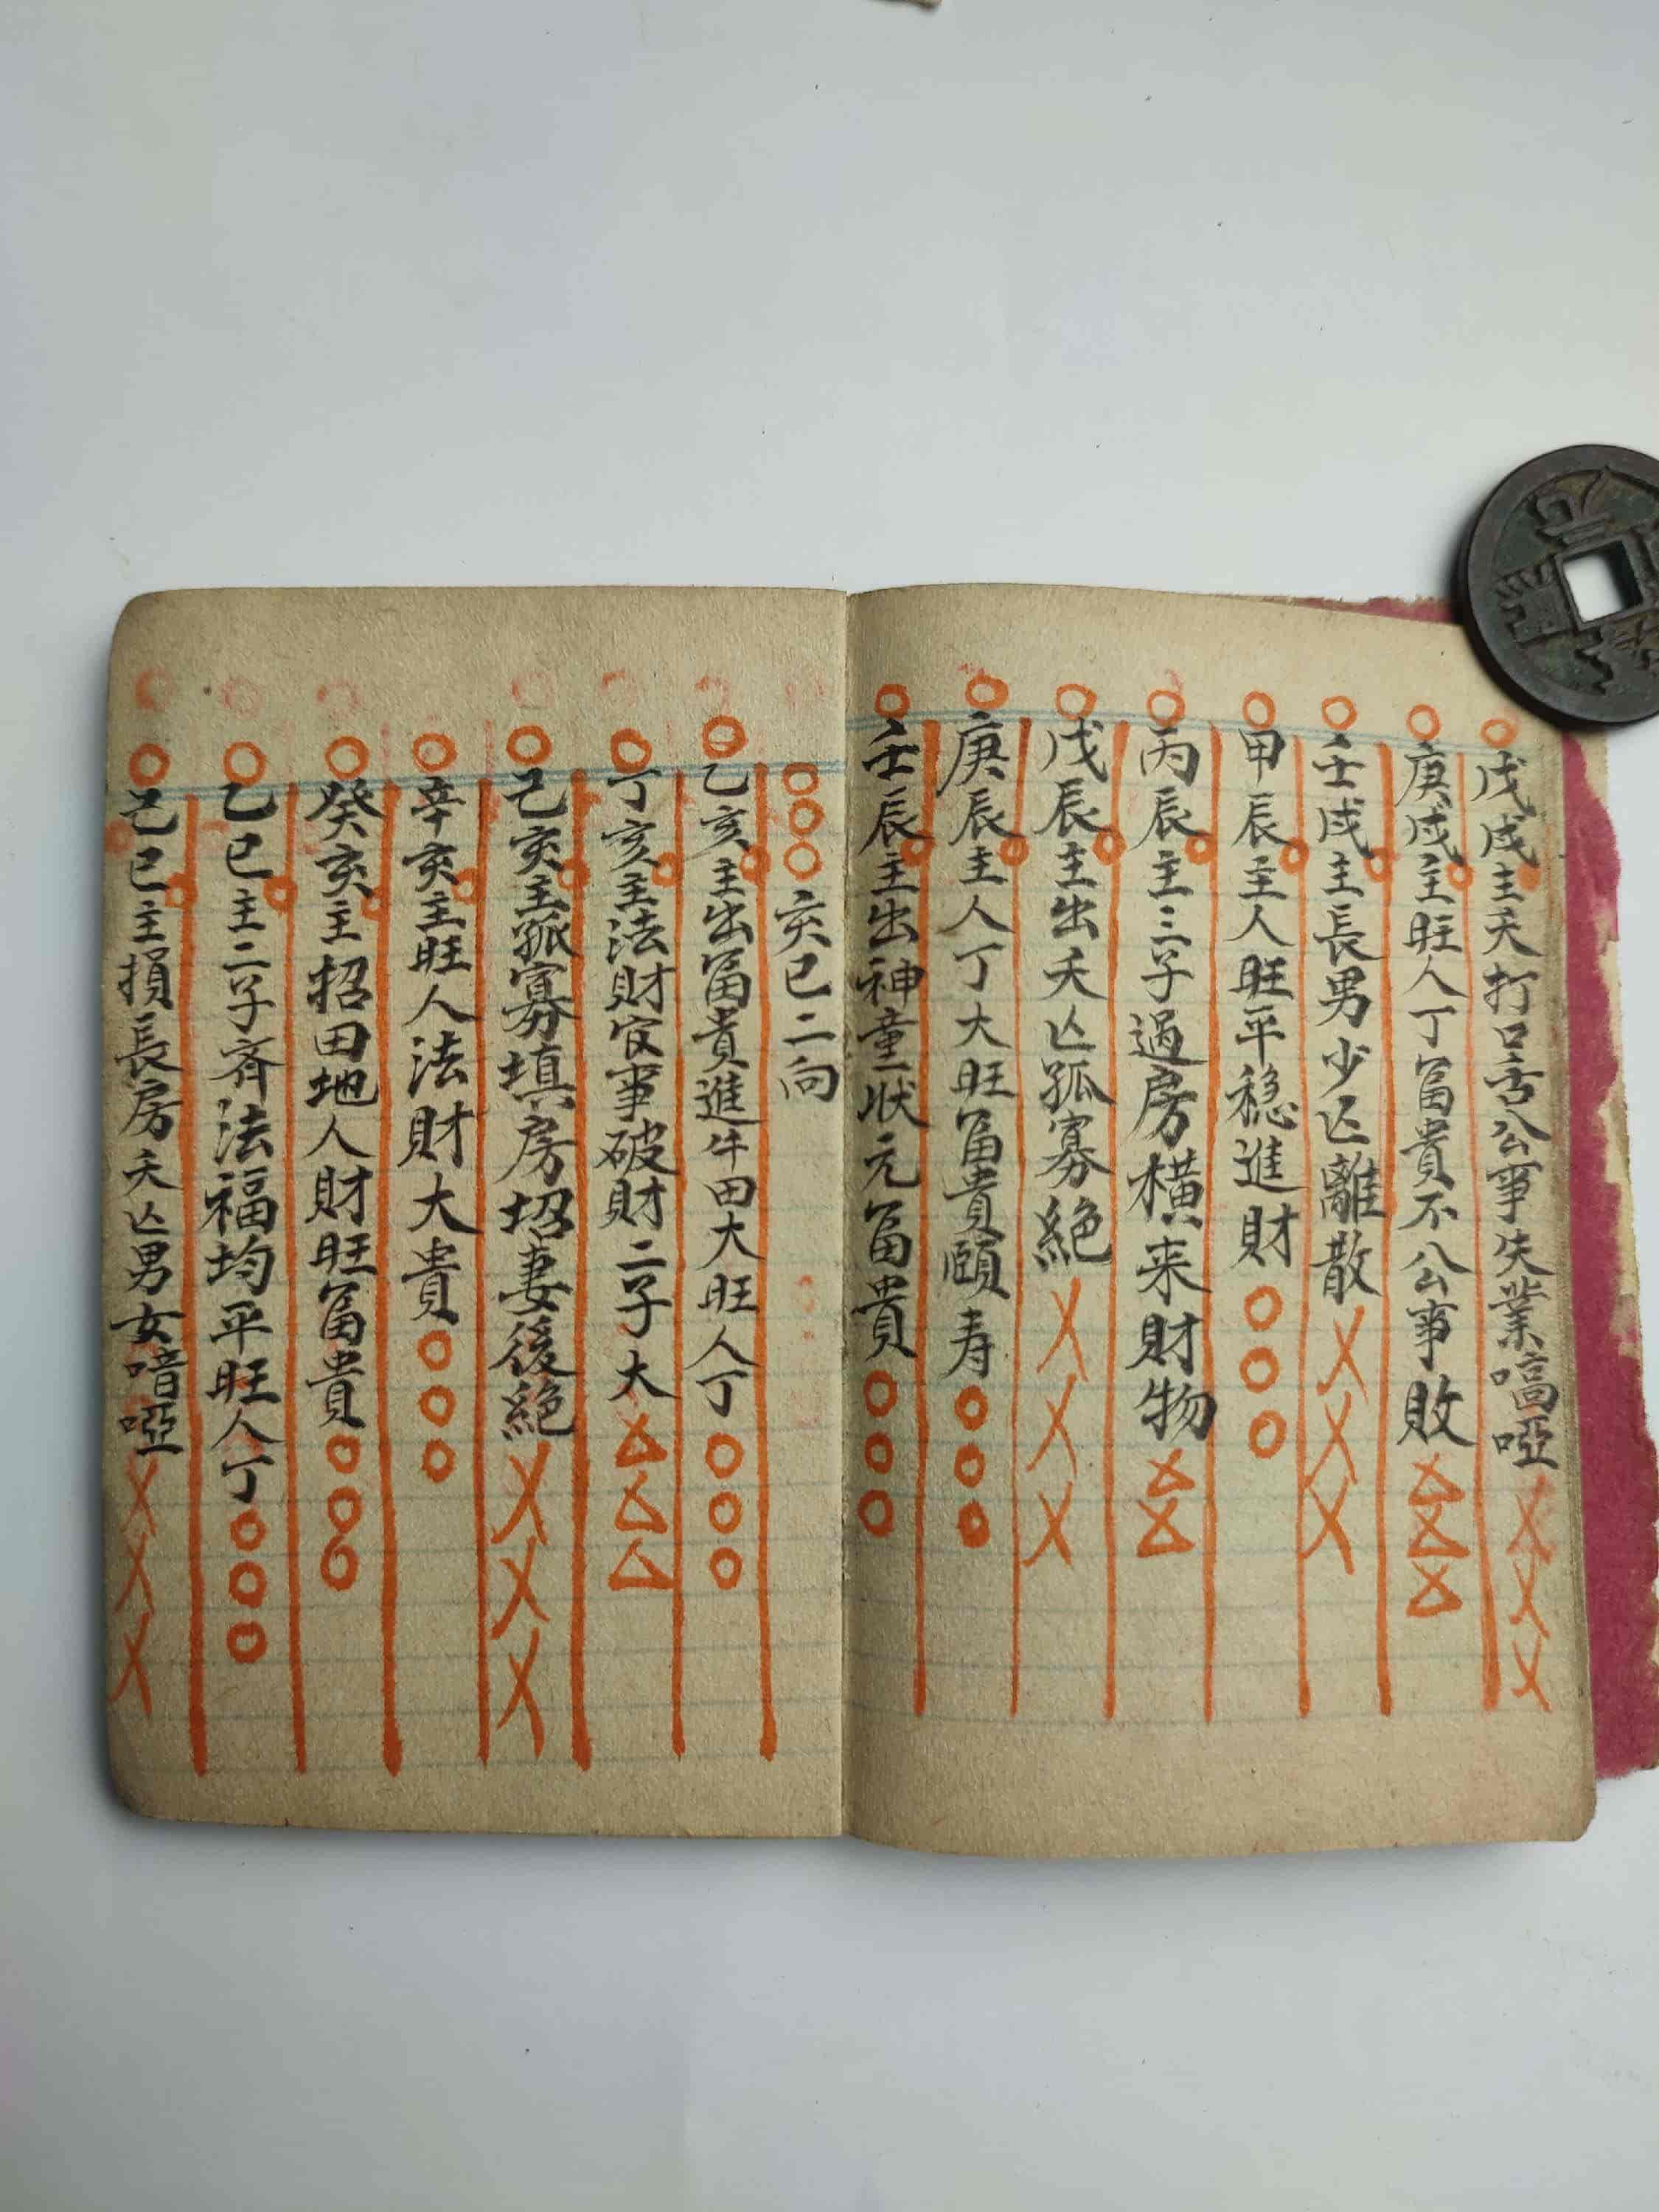 戊戌主夭打口舌公事失業㗖啞
庚戌主旺人丁富貴不公事敗
壬戌主長男少亡離散
甲辰主人旺平稳進財
丙辰主三子過房橫来財物
戊辰主出夭亡孤寡絕
庚辰主人丁大旺富貴頤寿
壬辰主出神童状元富貴
亥巳二向
乙亥主出富貴進牛田大旺人丁
丁亥主法財官事破財二子大
己亥主孤寡填房招妻後絕
辛亥主旺人法財大貴
癸亥主招田地人財旺富貴
乙巳主二子齊法福均平旺人丁
己巳主損長房夭亡男女喑啞